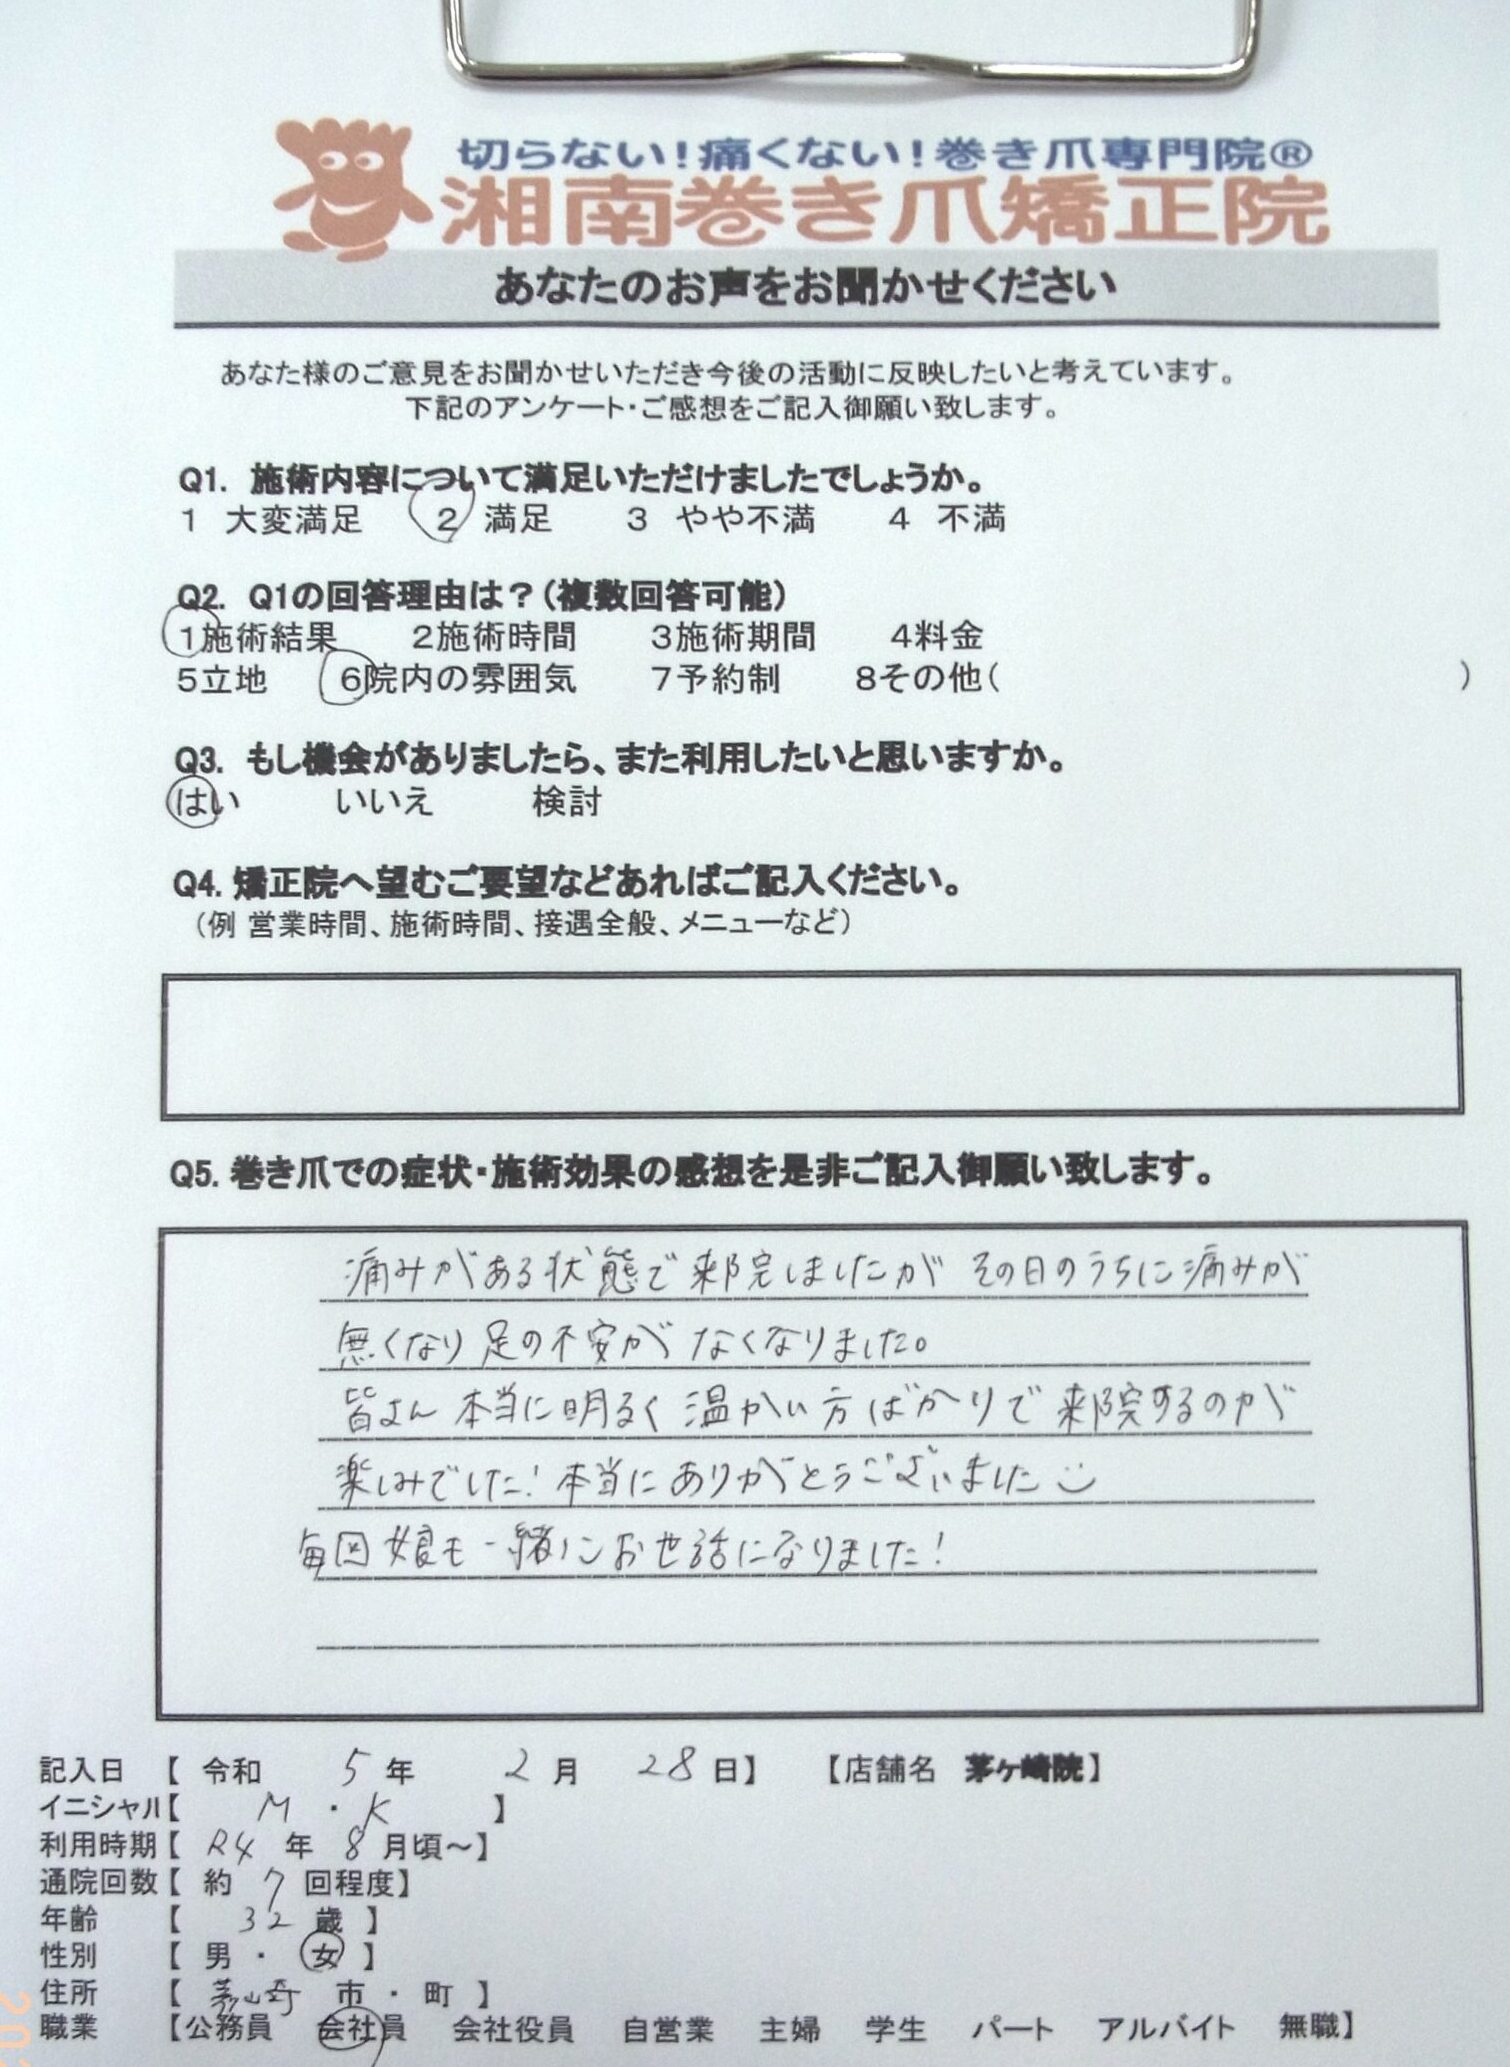 切らない！痛くない！巻き爪専門院®
湘南巻き爪矯正院
あなたのお声をお聞かせください
あなた様のご意見をお聞かせいただき今後の活動に反映したいと考えています。
下記のアンケート・ご感想をご記入御願い致します。
Q1. 施術内容について満足いただけましたでしょうか。
1 大変満足 2 満足 3 やや不満 4 不満
Q2. Q1の回答理由は？（複数回答可能）
1施術結果 2施術時間 3施術期間 4料金
5立地 6院内の雰囲気 7予約制 8その他（ ）
Q3. もし機会がありましたら、また利用したいと思いますか。
はい いいえ 検討
Q4. 矯正院へ望むご要望などあればご記入ください。
（例 営業時間、施術時間、接遇全般、メニューなど）
Q5. 巻き爪での症状・施術効果の感想を是非ご記入御願い致します。
痛みがある状態で来院しましたが その日のうちに痛みが
無くなり 足の不安が なくなりました。
皆さん 本当に明るく 温かい方ばかりで 来院するのが
楽しみでした！本当にありがとうございました
毎回 娘も一緒にお世話になりました！
記入日 【 令和 5 年 2 月 28 日】 【店舗名 茅ヶ崎院】
イニシャル【 M ・ K 】
利用時期【 R4 年 8 月頃～】
通院回数【 約 7 回程度】
年齢 【 32 歳 】
性別 【 男 ・ 女 】
住所 【 茅ヶ崎 市 ・ 町 】
職業 【公務員 会社員 会社役員 自営業 主婦 学生 パート アルバイト 無職】